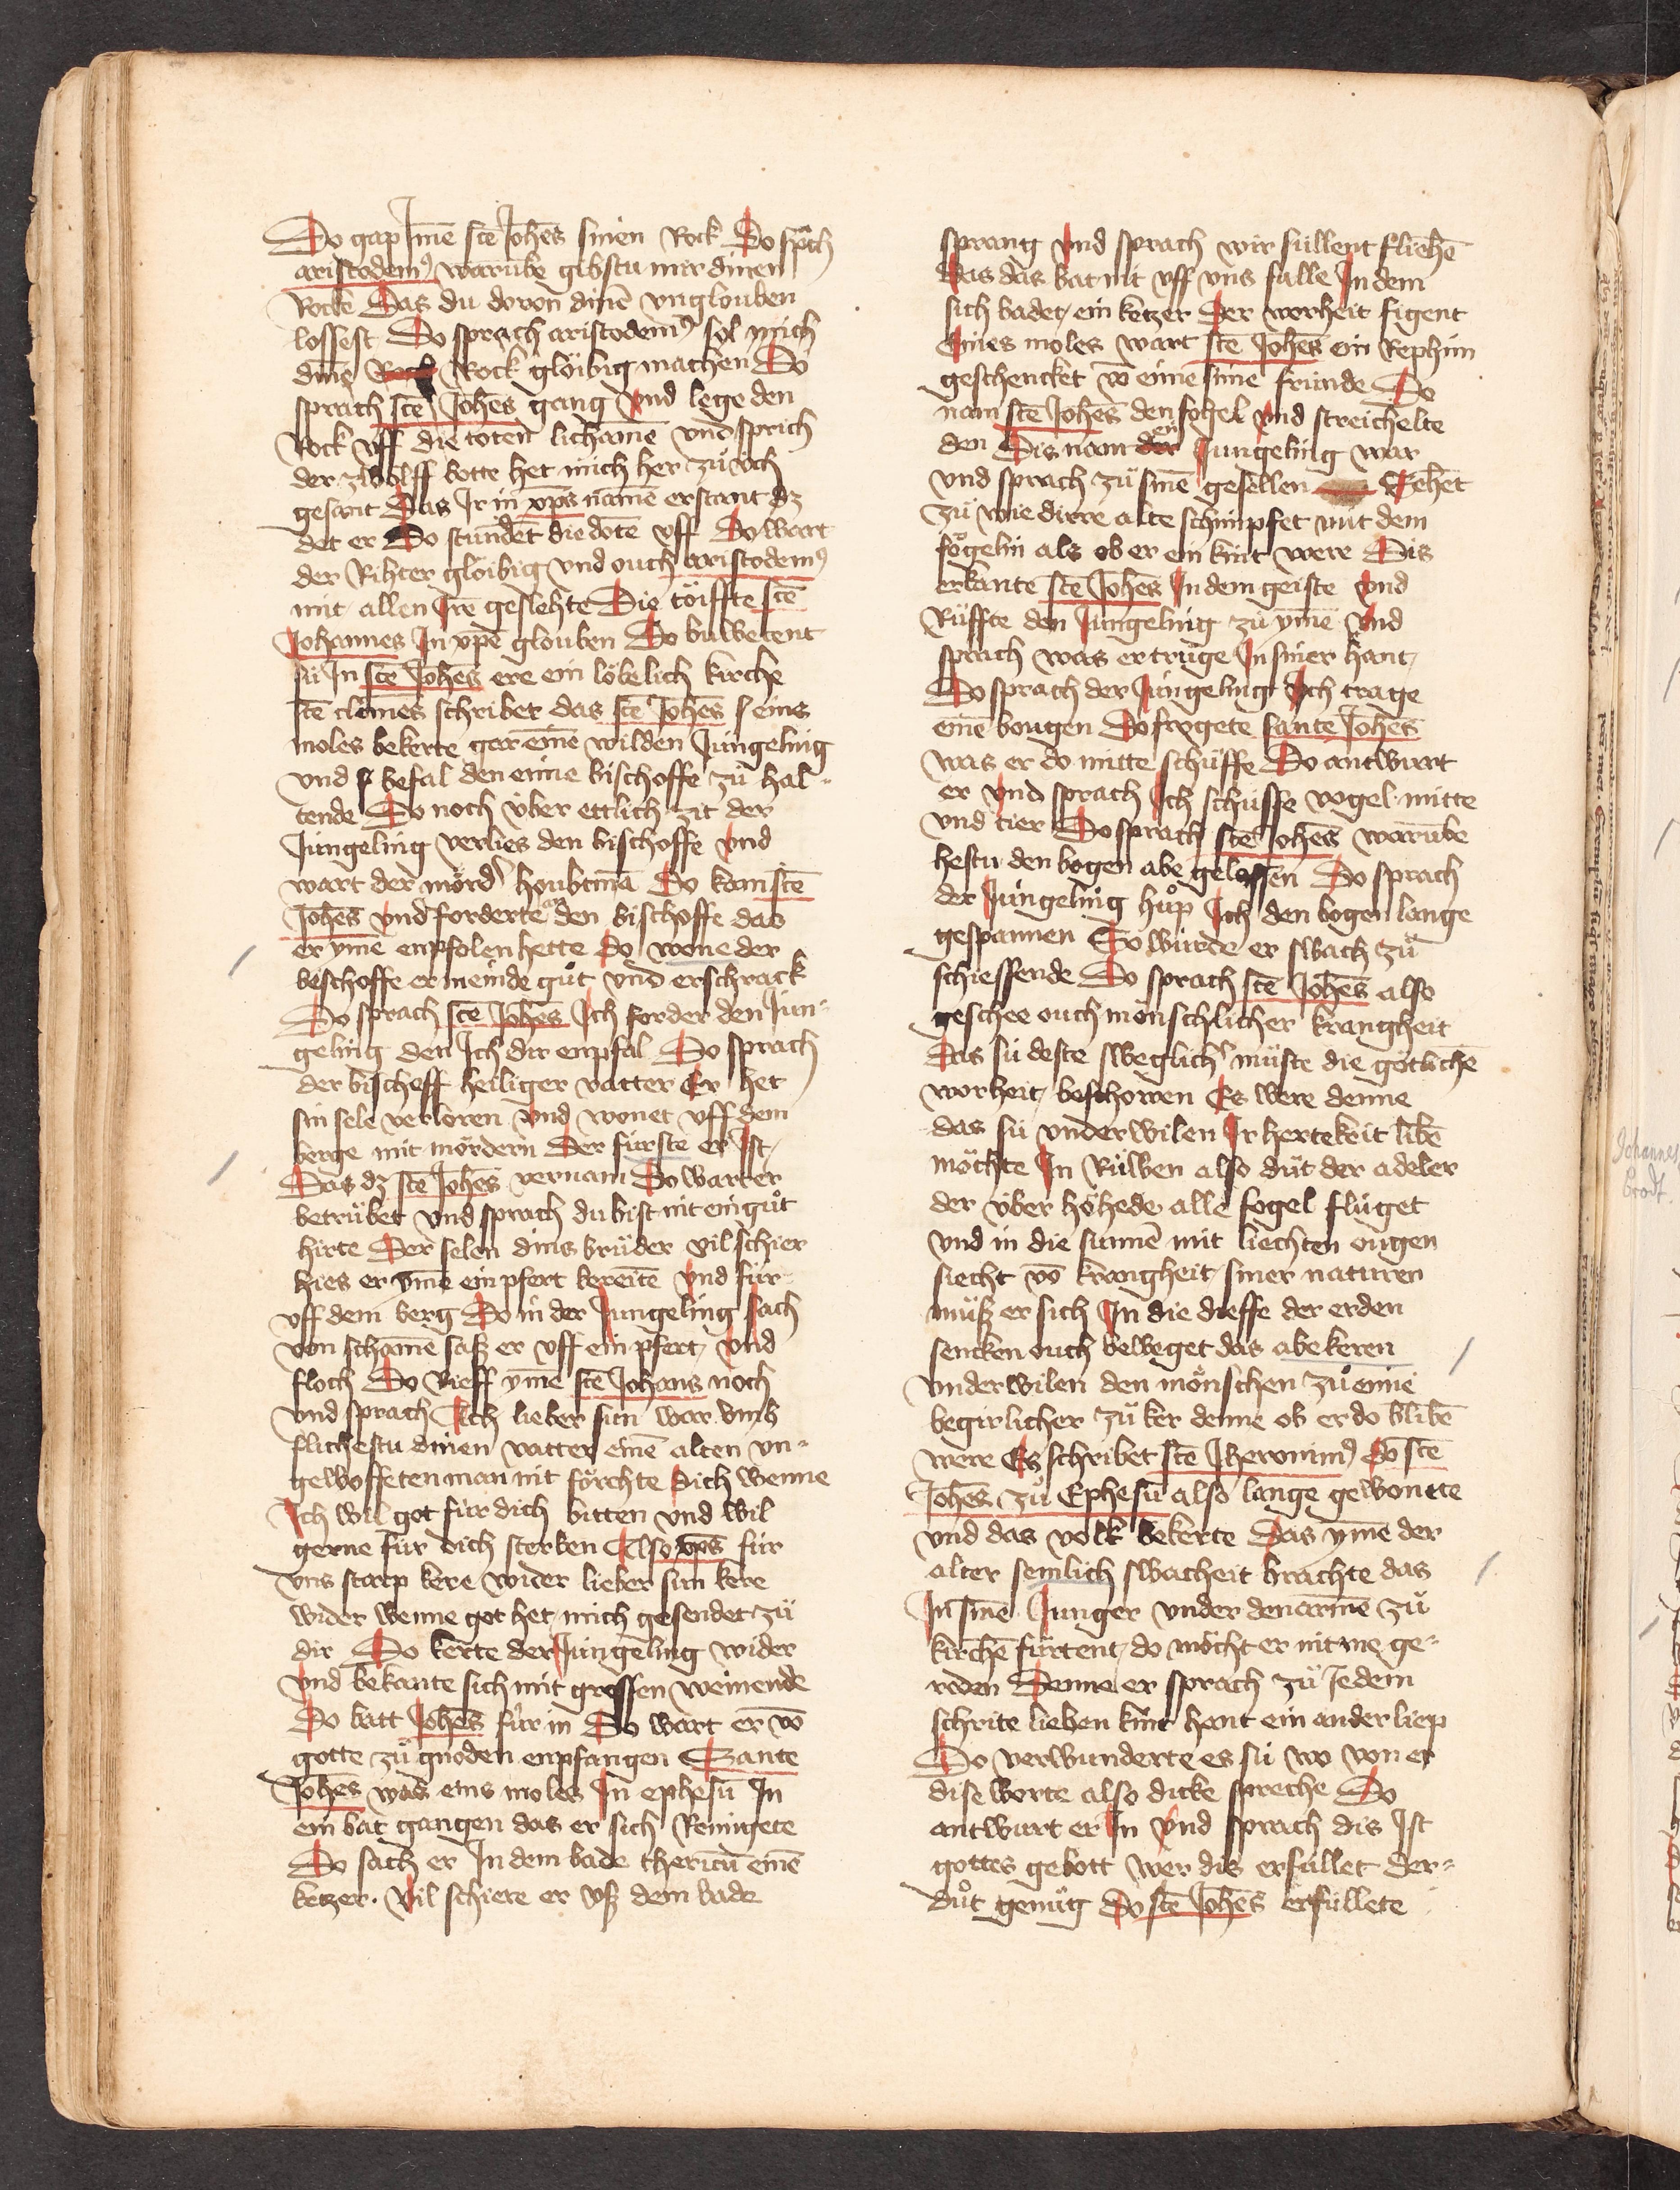 Do gap Jme ste Johēs sinen Rock Do sp̄ch
aristodemꝰ warūbe gibstu mir dinen
Rocke Das du dovon dinē vnglouben
lossest Do sprach aristodemꝰ sol mich
dinē Rock glöibig machen Do
sprach ste Johēs gang vnd lege den
Rock vff die toten lichamē vnd sprich
der zwölff botte het mich her zů v́ch
gesant Das Jr in xp̄s namē erstant dz
det er Do stundēt die dote vff Do wart
der Rihter glöibig vnd ouch aristodemꝰ
mit allen Jrē geslehte Die töiffte stē
Johannes Jn xpē glouben Do buwetent
sü Jn stē Johēs ere ein löbelich kirche
stē clemēs schribet das stē Johēs eins
moles bekerte gar einē wilden Jüngeling
vnd befal den eime bischoffe zů hal-
tende Do noch über ettlich zit der
Jüngeling verlies den bischoffe vnd
wart der mörd' houbtmā Do kam stē
Johēs vnd forderte an den bischoffe das
er ymē enpfolen hette do wone der
beschoffe er meinde gůt vnd erschrack
Do sprach stē Johēs Jch forder den Jün-
geling den Jch dir enpfal Do sprach
der bischeff heiliger vatter Er het
sin sele verloren vnd wonet vff dem
berge mit mördern Der fürste er Jst
Das dz stē Johēs vernam Do wart er
betrübet vnd sprach du bist nit ein gůt
hirte Der selen dins brüder vil schier
hies er ymē ein pfert bereitē vnd für
vff dem berg Do in der Jungeling sach
von schamē sasz er vff ein pfert vnd
floch Do Rieff ymē stē Johans noch
vnd sprach Ach lieber sun war vmb
fluhestu dinen vatter einē alten vn-
gewoffeten man nit förchte dich wenne
Jch wil got für dich bitten vnd wil
gerne für dich sterben Also xp̄s für
vns starp kere wider lieber sun kere
wider wenne got het mich gesendet zü
dir Do kerte der Jungeling wider
vnd bekante sich mit grossen weinende
Do batt Johēs für in Do wart er vō
gotte zů gnoden enpfangen Sante
Johēs was eins moles Jn ephesū Jn
ein bat gangen das er sich Reinigete
Do sach er Jn dem bade thericū einē
ketzer. Vil schiere er vsz dem bade
sprang vnd sprach wir süllent fliehē
Das das bat nit vff vns falle Jn dem
sich badet ein ketzer Der worheit figent
Eines moles wart stē Johēs ein Rephün
geschencket vō eime sime fründe Do
nam stē Johēs den fogel vnd streichelte
den Dis nam ein Jungeling war
vnd sprach zů sinē gesellen Sehēt
zů wie dirre alte schimpfet mit dem
fögelin als ob er ein kint were Dis
erkante stē Johēs Jn dem geiste vnd
Rüffte den Jüngeling zů ymē vnd
sprach was er trüge Jn siner hant
Do sprach der Jüngeling Jch trage
einē bougen Do frogete sante Johēs
was er do mitte schüffe Do antwurt
er vnd sprach Jch schüsse vogel mitte
vnd tier Do sprach stē Johēs warūbe
hestu den bogen abe gelossen Do sprach
der Jüngeling hůp Jch den bogen lange
gespannen So würde er swach zů
schiessende Do sprach stē Johēs also
geschee ouch mönschlicher krangheit
Das sü deste sweglich' müste die götlichē
worheit beschowen Es were denne
das sü vnderwilen Jr hertekeit libē
möchte Jn Rüwen also düt der adeler
der über höhede alle fogel flüget
vnd in die sunnē mit liechten ougen
siecht vō krangheit siner naturen
müsz er sich Jn die dieffe der erden
sencken ouch beweget das abekeren
vnderwilen den mönschen zů eime
begirlicher zů ker denne ob er do blibē
were Es schribet stē Jheronimꝰ do stē
Johēs zů Ephesū also lange gewonete
vnd das volk bekerte Das ymē der
alter semlich swacheit brachte das
Jn sinē Junger vnder den armē zů
kirchē fürtent do möcht er nit me ge-
reden Denne er sprach zů Jedem
schrite lieben kint hant ein ander liep
Do verwunderte es sü wo von er
dise worte also dicke spreche Do
antwurt er Jn vnd sprach dis Jst
gottes gebott wer dis erfüllet der-
důt genůg Do stē Johēs erfüllete
Johannes
Brodt.